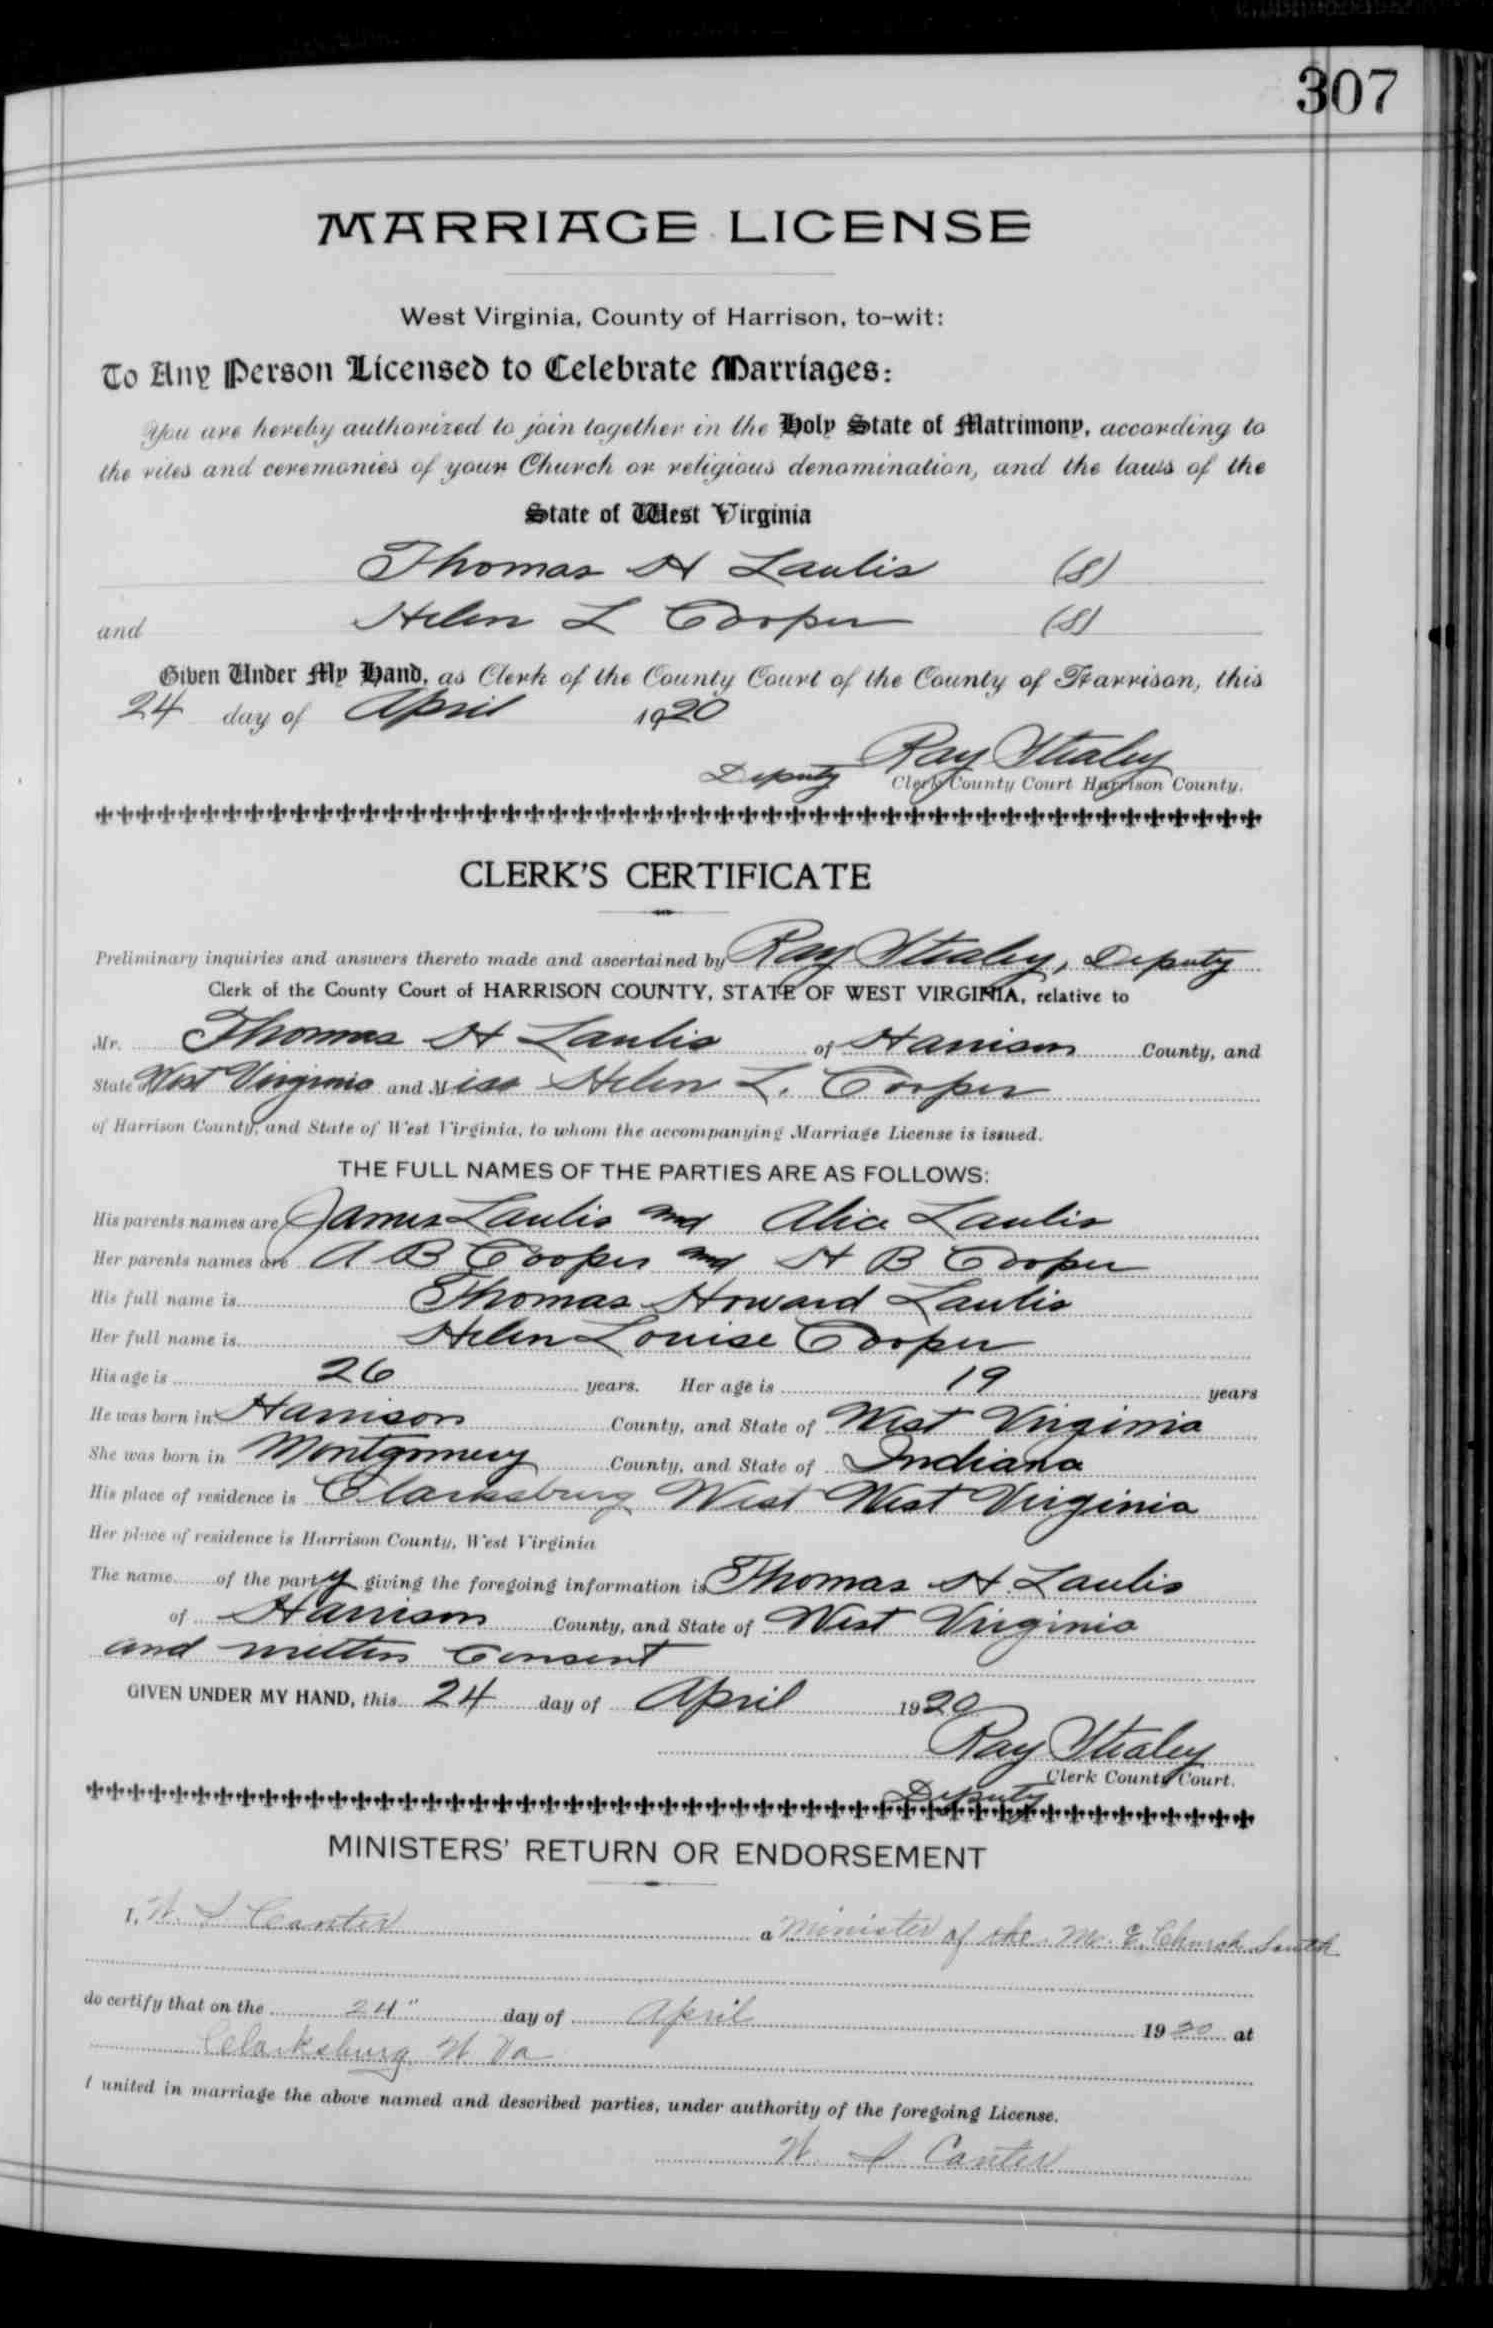 307
MARRIAGE LICENSE
West Virginia, County of Harrison, to-wit:
To Any Person Licensed to Celebrate Marriages:
You are hereby authorized to join together in the Holy State of Matrimony, according to
the rites and ceremonies of your Church or religious denomination, and the laws of the
State of West Virginia
Thomas H Laulis (S)
and Helen L Cooper (S)
Given Under My Hand, as Clerk of the County Court of the County of Harrison, this
24 day of April 1920
Deputy Ray Stealey
Clerk County Court Harrison County.
CLERK'S CERTIFICATE
Preliminary inquiries and answers thereto made and ascertained by Ray Stealey, Deputy
Clerk of the County Court of HARRISON COUNTY, STATE OF WEST VIRGINIA, relative to
Mr. Thomas H Laulis of Harrison County, and
State West Virginia and Miss Helen L. Cooper
of Harrison County, and State of West Virginia, to whom the accompanying Marriage License is issued.
THE FULL NAMES OF THE PARTIES ARE AS FOLLOWS:
His parents names are James Laulis and Alice Laulis
Her parents names are A B Cooper and H B Cooper
His full name is Thomas Howard Laulis
Her full name is Helen Louise Cooper
His age is 26 years. Her age is 19 years
He was born in Harrison County, and State of West Virginia
She was born in Montgomery County, and State of Indiana
His place of residence is Clarksburg West West Virginia
Her place of residence is Harrison County, West Virginia
The name of the party giving the foregoing information is Thomas H. Laulis
of Harrison County, and State of West Virginia
and written consent
GIVEN UNDER MY HAND, this 24 day of April 1920
Ray Stealey
Clerk County Court.
Deputy
MINISTERS' RETURN OR ENDORSEMENT
I, W. I. Canter a Minister of the M. E. Church South
do certify that on the 24" day of April 1920 at
Clarksburg W Va
I united in marriage the above named and described parties, under authority of the foregoing License.
W. I. Canter